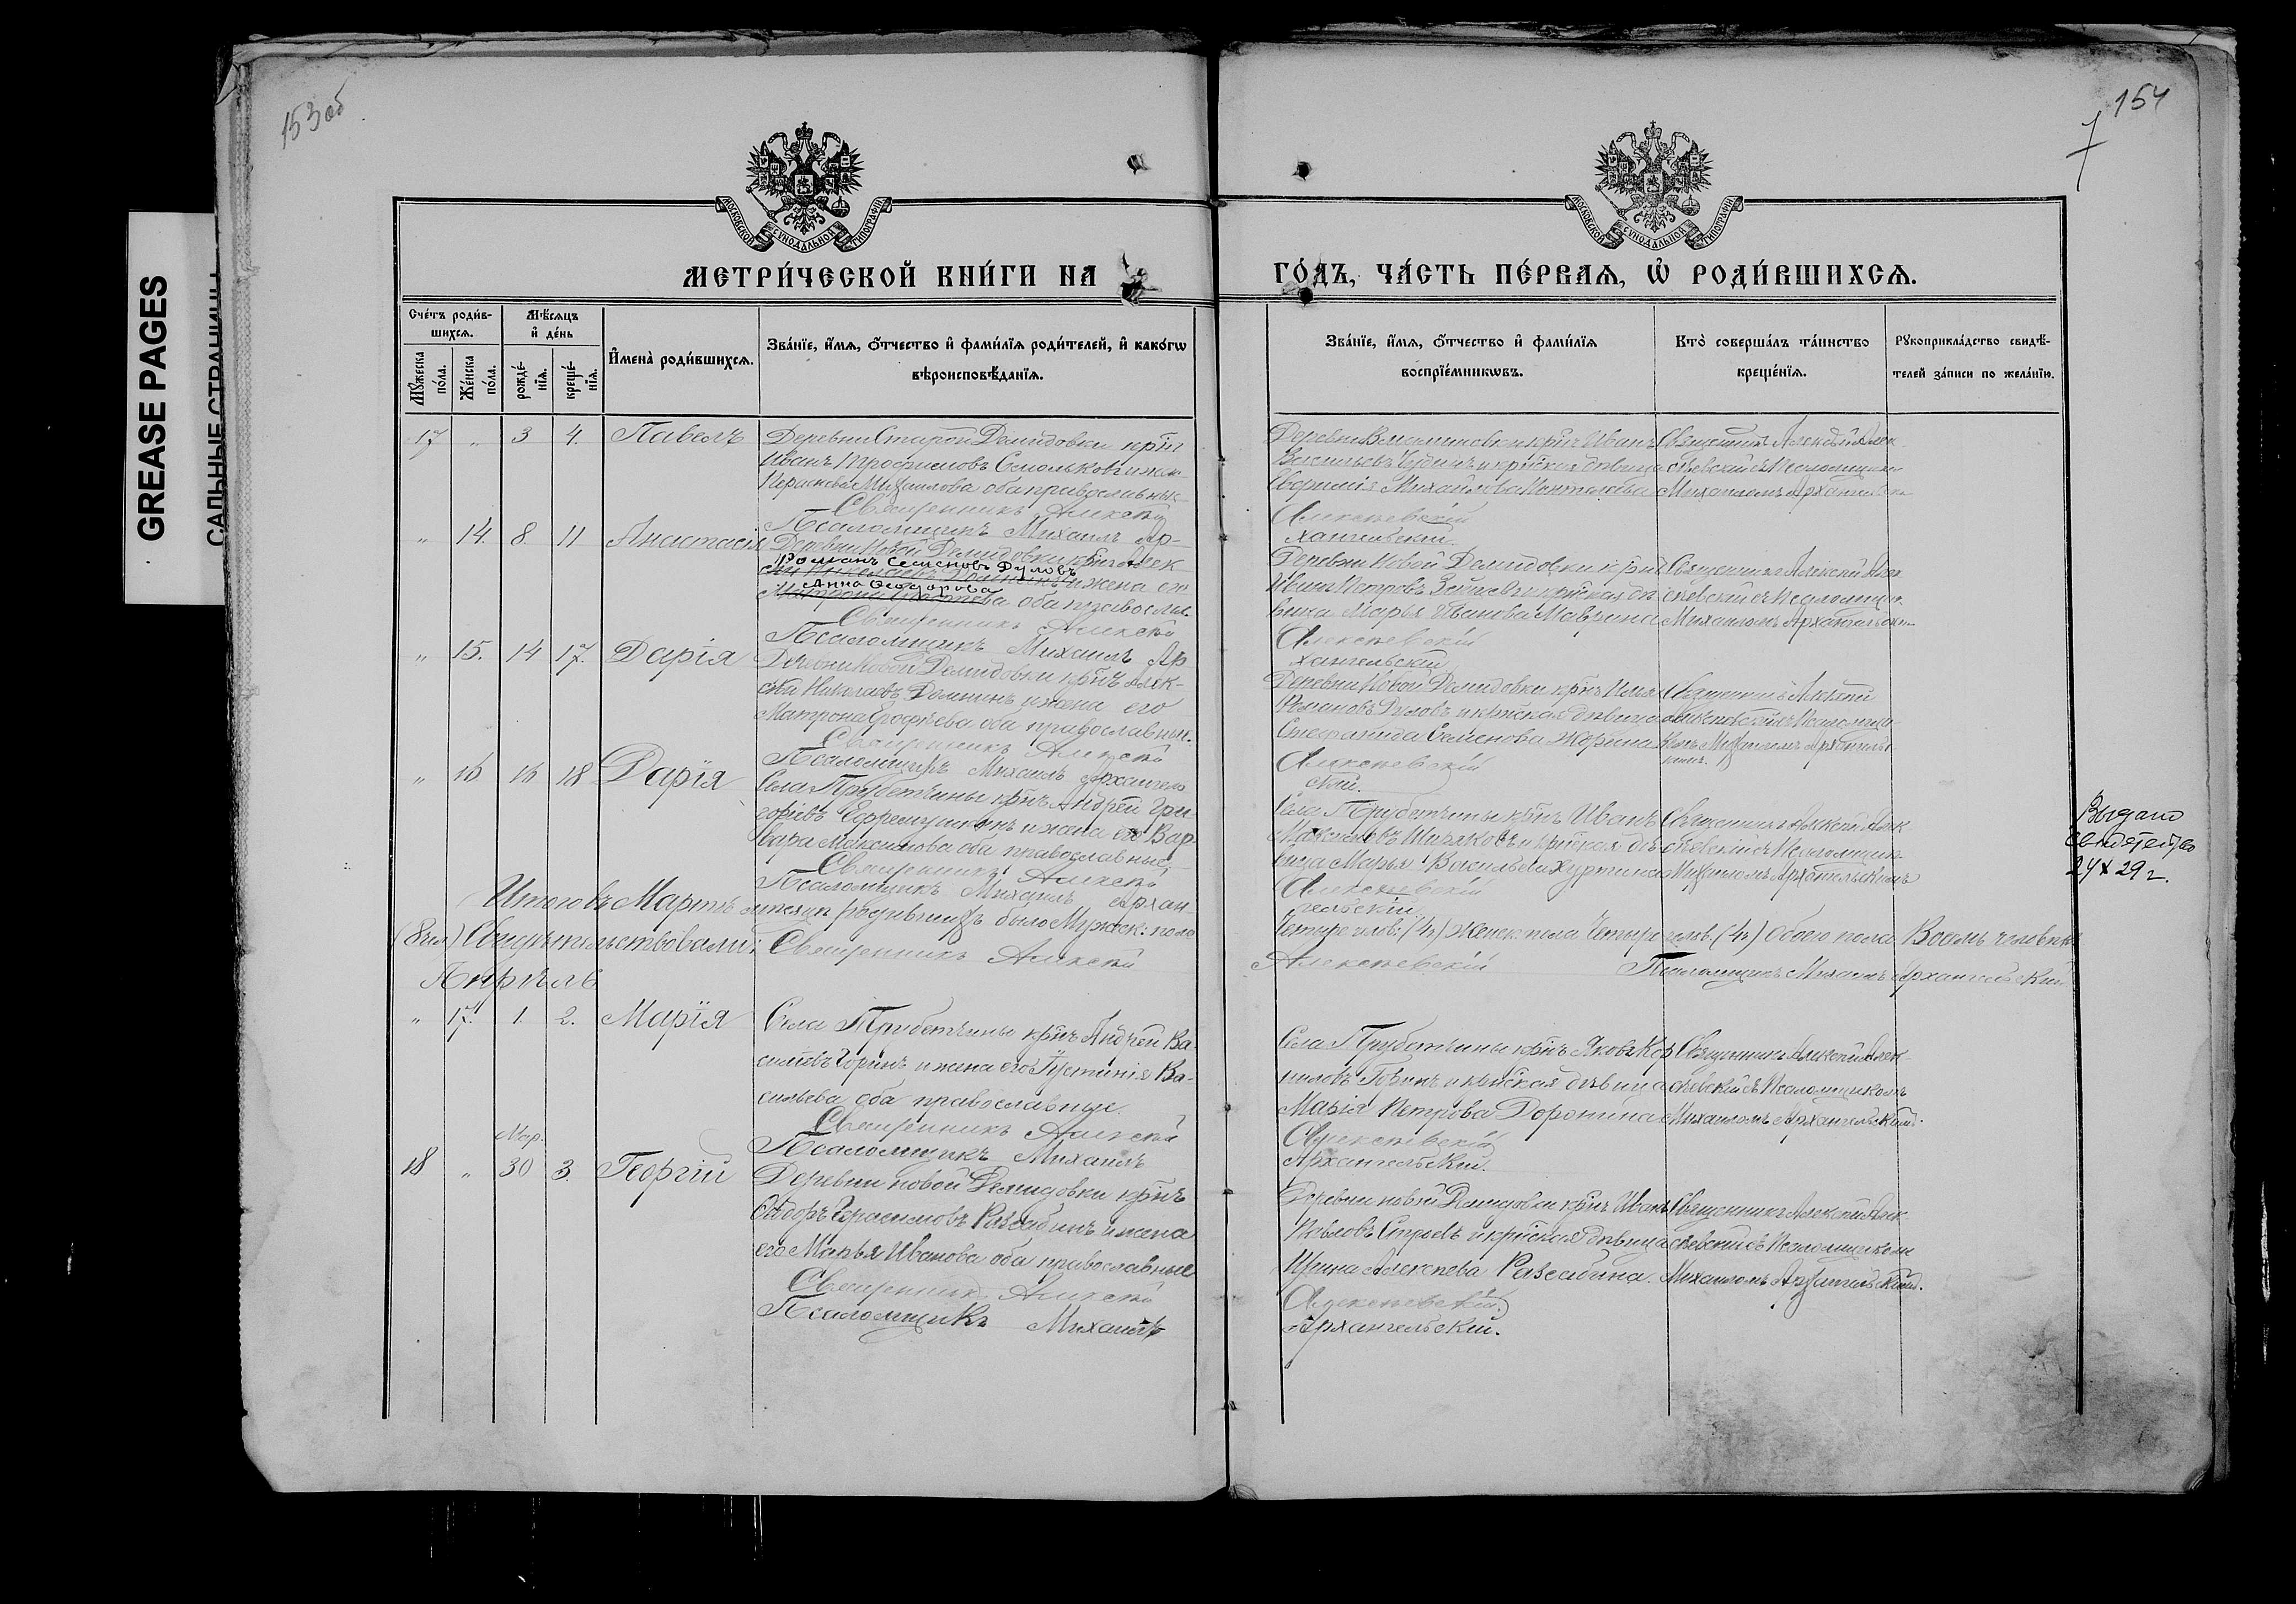 153об
154
7
GREASE PAGES
САЛЬНЫЕ СТРАНИЦЫ
МОСКОВСКОЙ СѴНОДАЛЬНОЙ ТИПОГРАФІИ
МОСКОВСКОЙ СѴНОДАЛЬНОЙ ТИПОГРАФІИ
МЕТРИ́ЧЕСКОЙ КНИ́ГИ НА
ГО́ДЪ, ЧА́СТЬ ПЕ́РВАѦ, Ѡ҆ РОДИ́ВШИХСѦ.
Сче́тъ роди́в-
шихсѧ.
Мꙋ́жеска по́ла.
Же́нска по́ла.
Мѣ́сѧцъ
и҆ де́нь
рожде́-
нїѧ.
креще́-
нїѧ.
И҆мена̀ роди́вшихсѧ.
Зва́нїе, и҆́мѧ, ѻ҆́тчество и҆ фами́лїѧ роди́телей, и҆ како́гѡ
вѣроисповѣ́данїѧ.
Зва́нїе, и҆́мѧ, ѻ҆́тчество и҆ фами́лїѧ
воспрїе́мникѡвъ.
Кто̀ соверша́лъ та́инство
креще́нїѧ.
Рꙋкоприкла́дство свидѣ́-
телей за́писи по жела́нїю.
17 " 3 4. Павелъ
Деревни Старой Демидовки кр̃нъ
Иванъ Трофимовъ Смольковъ и жена
Михаилова оба православные
Священникъ Алексѣй
Псаломщикъ Михаилъ Ар-
Деревни кр̃нъ Иванъ
Васильевъ и кр̃нская дѣвица
Евфимія Михайлова
Алексѣевскій
хангельскій.
Священникъ Алексѣй Алек-
сѣевскій съ Псаломщикомъ
Михаиломъ Архангельскимъ
" 14. 8. 11 Анастасія
Деревни Новой Демидовки кр̃нъ Алек-
Романъ Семеновъ Дуловъ
сѣй Николаевъ Доминъ и жена его
Анна Ѳеодорова
Матрона Ерофѣева оба православн.
Священникъ Алексѣй
Псаломщикъ Михаилъ Ар-
Деревни Новой Демидовки кр̃нъ
Иванъ Петровъ и кр̃нская дѣ-
вица Марья Иванова Маврина
Алексѣевскій
хангельскій
Священникъ Алексѣй Алек-
сѣевскій съ Псаломщик.
Михаиломъ Архангельским
" 15. 14 17. Дарія
Деревни Новой Демидовки кр̃нъ Алек-
сѣй Николаевъ Доминъ и жена его
Матрона Ерофѣева оба православные.
Священникъ Алексѣй
Псаломщикъ Михаилъ Архангель
Деревни Новой Демидовки кр̃нъ Илья
Романовъ Дуловъ и кр̃нская дѣвица
Степанида Семенова Жарина
Алексѣевскій
скій.
Священникъ Алексѣй
Алексѣевскій съ Псаломщи-
комъ Михаиломъ Архангельс
кимъ.
" 16 16 18 Дарія
Села Трубетчины кр̃нъ Андрей Гри-
горьевъ и жена его Вар-
вара Максимова оба православные
Священникъ Алексѣй
Псаломщикъ Михаилъ Архан-
Села Трубетчины кр̃нъ Иванъ
Максимовъ и кр̃нская дѣ-
вица Марья Васильева
Алексѣевскій
гельскій.
Священникъ Алексѣй Алек-
сѣевскій съ Псаломщик-
Михаиломъ Архангельскимъ
Выдано
свидетель-во
24 X 29 г.
Итого въ Мартѣ мѣсяцѣ родившихся было Мужеск: пола
Четыре челов: (4ч) Женск: пола Четыре челов. (4ч) Обоего пола Восемь человѣкъ
(8чел) Свидѣтельствовали: Священникъ Алексѣй
Алексѣевскій Псаломщикъ Михаилъ Архангельскій
Апрѣль
" 17. 1. 2. Марія
Села Трубетчины кр̃нъ Андрей Ва-
сильевъ Горинъ и жена его Іустинія Ва-
сильева оба православные.
Священникъ Алексѣй
Псаломщикъ Михаилъ
Села Трубетчины кр̃нъ Яковъ Кор
ниловъ Горинъ и кр̃нская дѣвица
Марія Петрова Доронина
Алексѣевскій
Архангельскій.
Священникъ Алексѣй Алек-
сѣевскій съ Псаломщикомъ
Михаиломъ Архангельским.
Мар.
18 " 30 3. Георгій
Деревни новой Демидовки кр̃нъ
Ѳедоръ Герасимовъ Разсадинъ и жена
его Марья Иванова оба православные
Священникъ Алексѣй
Псаломщикъ Михаилъ
Деревни новой Демидовки кр̃нъ Иванъ
Павловъ и кр̃нская дѣвица
Ирина Алексѣева Разсадина.
Алексѣевскій.
Архангельскій.
Священникъ Алексѣй Алек-
сѣевскій съ Псаломщикомъ
Михаиломъ Архангельским.